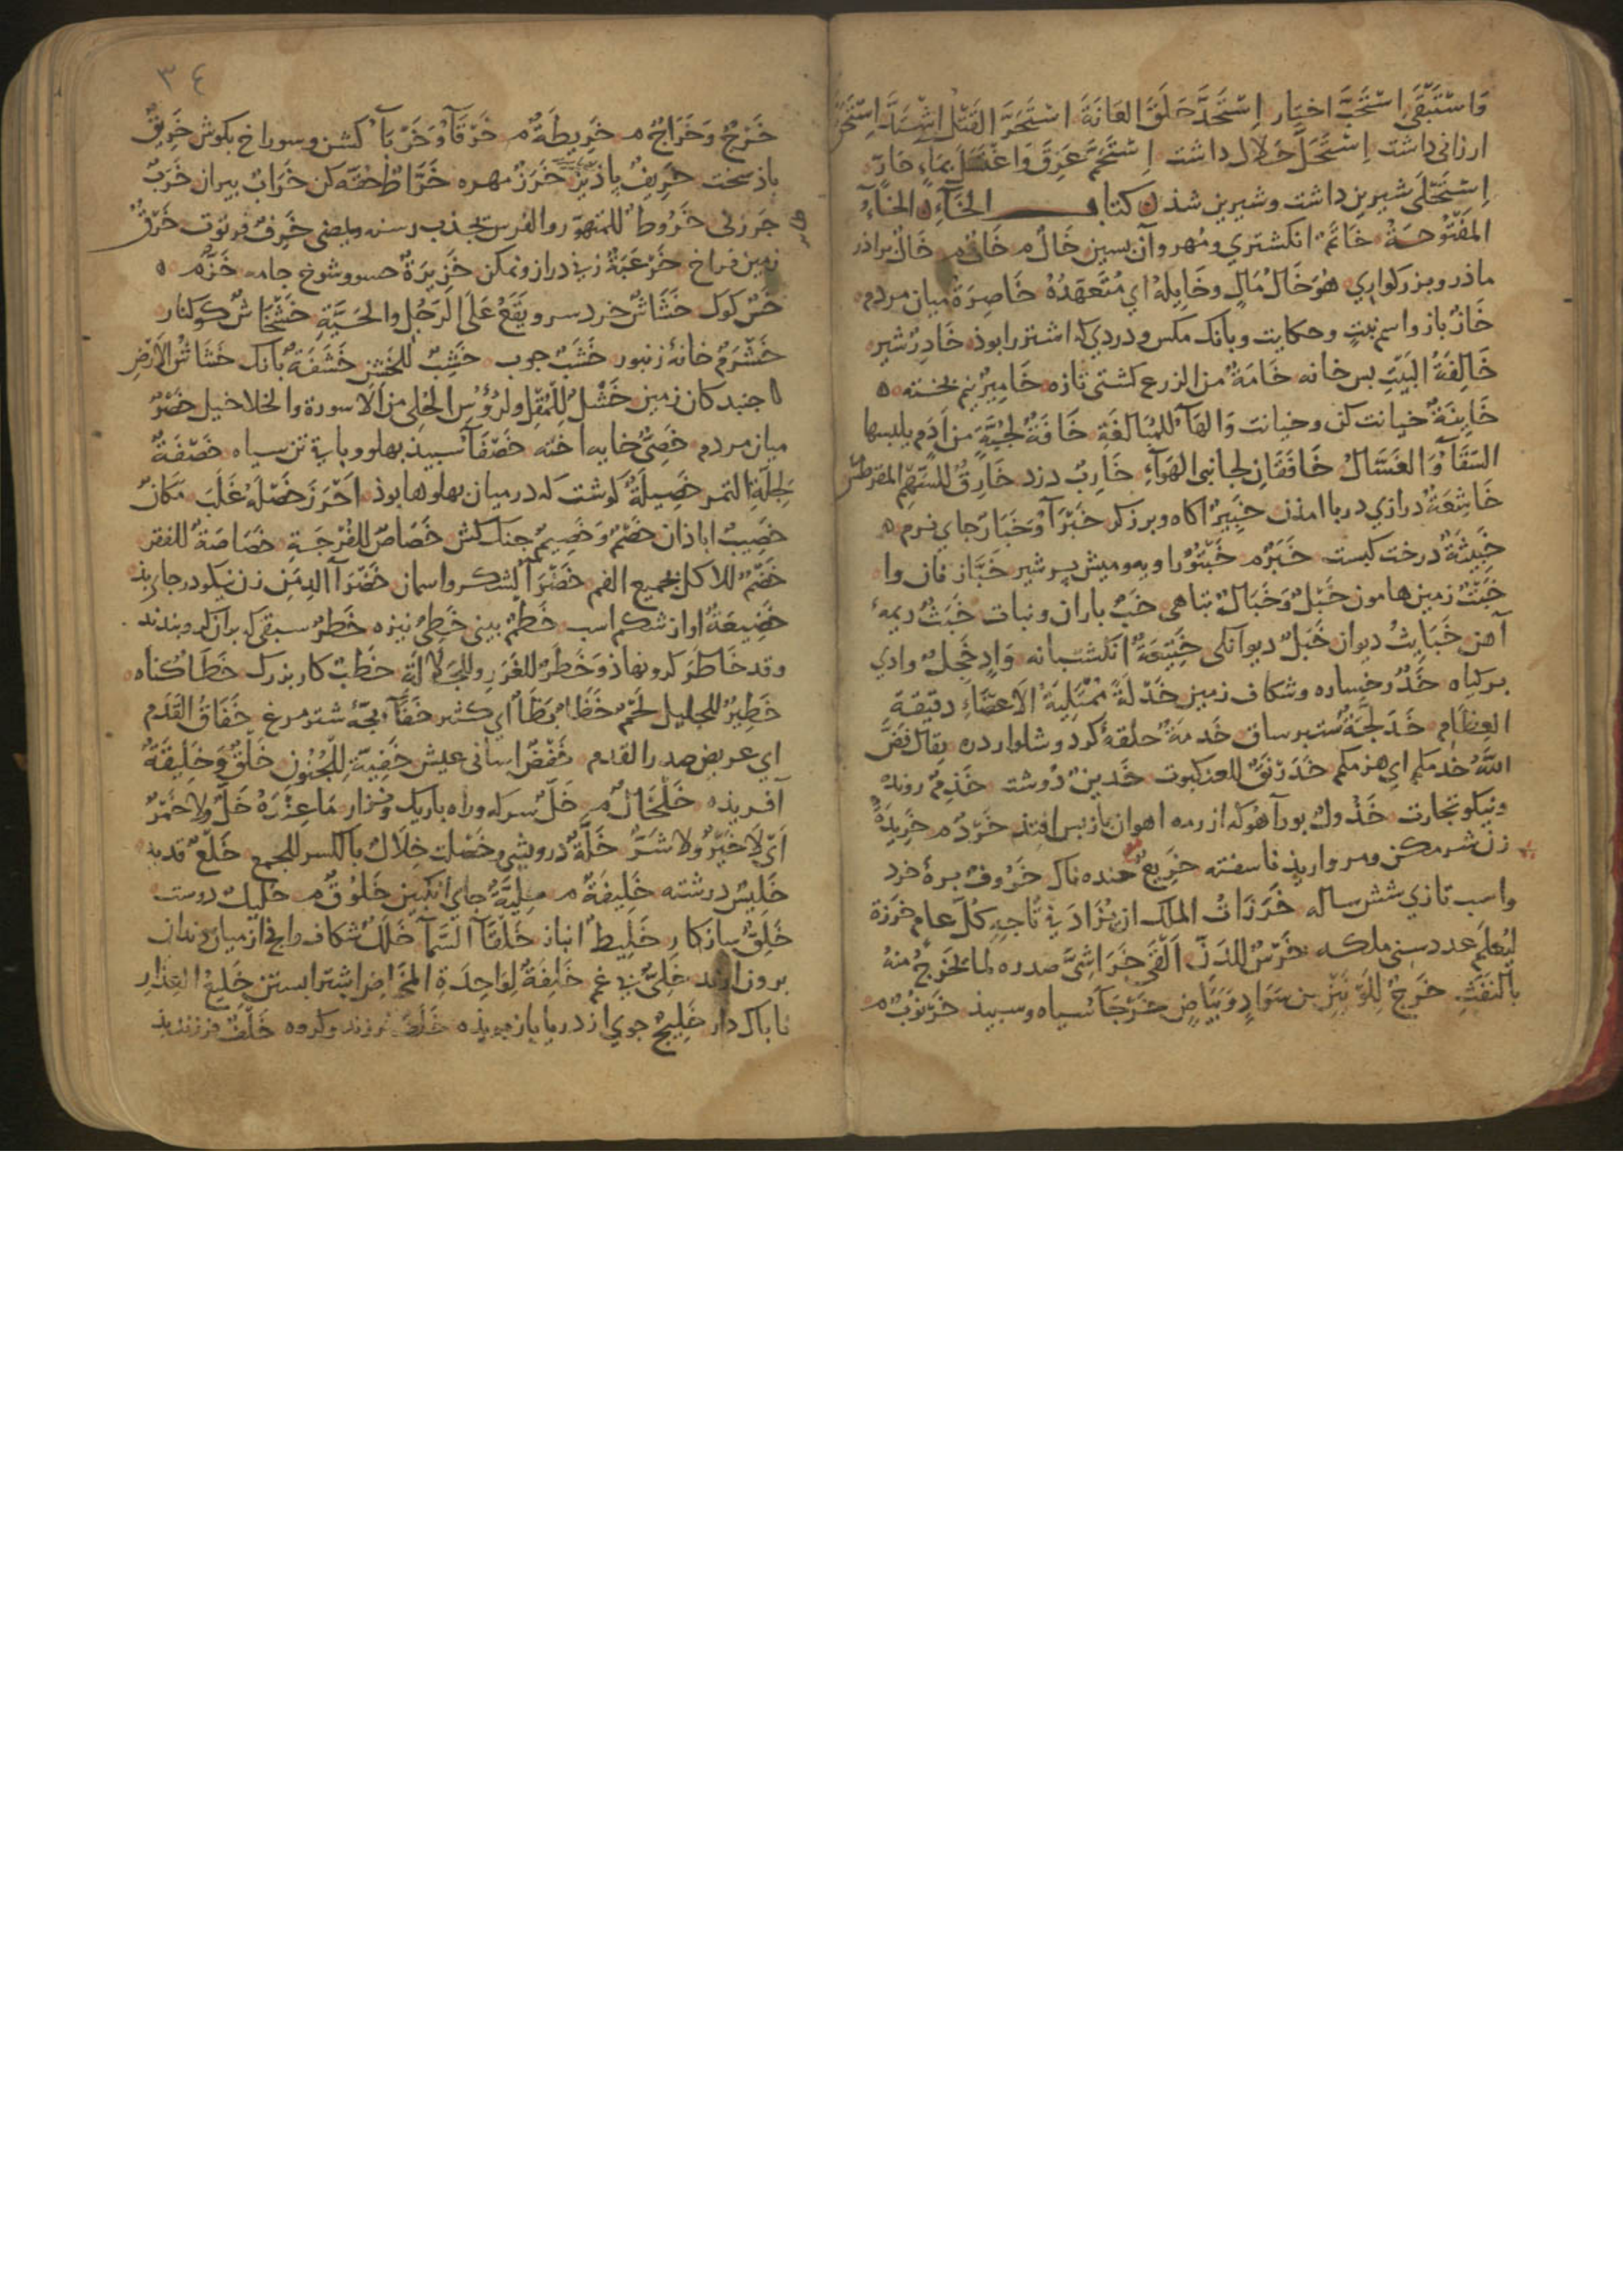 وَاسْتَبْقَى اسْتَحَبَّ اختيار اِسْتَحَدَّ حَلَقَ العَانَةَ اسْتَحَرَّ القَتْلُ اشْتَدَّ
ارزانی داشت اِسْتَحَلَّ حلال داشت اِسْتَحَمَّ عَرِقَ وَاغْتَسَلَ بِمَاءٍ حَارٍّ
اِسْتَحْلَى شیرین داشت وشیرین شذ كتاب الخَاءِ الخَاءُ
المَفْتُوحَةُ خَاتَمٌ انکشتری ومُهر وآن بسین خَالٌ م خَانٌ م خَالٌ براذر
ماذر وبزرکواری هُوَ خَالُ مَالٍ وخَايِلُهُ اي مُتَعَهِّدُهُ خَاصِرَةٌ میان مردم
خَازِ باز واسم نبت وحکایت وبانک مکس ودردی که اشتر را بوذ خَادِرٌ شیر
خَالِفَةُ البَيْتِ بس خانه خَامَةٌ من الزرع کشتی تازه خَامِيزٌ نیم بخته
خَايِنَةٌ خیانت کن وخیانت وَالهَاءُ للمُبَالَغَةِ خَافَةٌ لِجُبَّةٍ مِنْ اَدَمٍ يلبسها
السَّقَّاءُ وَالعَسَّالُ خَافَقَانِ لجانبي الهَوَآءِ خَارِبٌ دزد خَارِقٌ لِلسَّهْمِ المقرطس
خَاشِعَةٌ درازي دربا امذن خَبِيرٌ اکاه وبرزکر خَبْرَآءُ وَخَبَارٌ جای نرم
خَبِيثَةٌ درخت کبست خَبَرٌ م خَبْتُورٌ اویه ومیش پر شیر خَبَّازٌ نان وا
خَبْتٌ زمین هامون خَبْلٌ وَخَبَالٌ تباهی خَبٌّ باران ونبات خَبَثٌ ریمهٔ
آهن خَبَايِثُ دیوان خَبَلٌ دیوانکی خَيْتَعَةٌ انکشتبانه وَادٍ خَجِلٌ وادي
برکیاه خَدٌّ رخساره وشکاف زمین خَدْلَةٌ مُمْتَلِيَةُ الاَعضَاءِ دقیقة
العِظَامِ خَدَلَّجَةٌ ستبر ساق خَدَمَةٌ حلقهٔ کرد وشلوار دره يقال فَضَّ
اللّٰهُ خدمتكم اي هزمكم خَدَرْنَقٌ للعنكبوت خَدِينٌ دوست خَذِمٌ رونده
ونیکو تجارت خَذُولٌ بورآهو که از رمه اهوان باز بس افتذ خَرْدٌ م خَرِيدَةٌ
زن شرمکن ومروارید ناسفته خَرِيعٌ خنده ناک خَرُوفٌ برهٔ خرد
واسب تازی شش ساله خَرَزَاتُ الملك ان يُزَادَ في تَاجِهِ كُلَّ عام خرزة
لِيُعْلَمَ عدد سني ملكه خَرْسٌ للدَنِّ اَلْقَى خَرَاشِيَّ صدره لما يخْرُجُ مِنْهُ
بالنَفْثِ خَرَجٌ لِلَوْنَيْنِ مِن سَوَادٍ وَبَيَاضٍ خَرْجَآءُ سیاه وسبیذ خَرُّوبٌ م
٣٤
خَرْجٌ وَخَرَاجٌ م خَرِيطَةٌ م خَرْقَآءُ وَخَرْبَآءُ کشن وسوراخ بکوش خَرِيقٌ
باذ سخت خَرِيفٌ باذیز خَرَزٌ مهره خَرَّاطٌ حقه کن خَرَابٌ بیران خَرِبٌ
جرزنی خَرُوطٌ للمتهوّر والفرس يجذب رسنه ويمضي خَرِفٌ فرتوت خَرْقٌ
زمین فراخ خَرْعَبَةٌ زنی دراز ونمکن خَزِيرَةٌ حسو وشوخ جامه خَزٌّ م
خَسٌّ کوک خَشَاشٌ خرد سر ويَقَعُ عَلَى الرَجُلِ والحَيَّةِ خَشْخَاشٌ کوکنار
خَشْرَمٌ خانهٔ زنبور خَشَبٌ جوب خَشِبٌ للخَشِنِ خَشَفَةٌ بانک خَشَاشُ الاَرْضِ
جنبدکان زمین خَشْلٌ لِلْمُقْلِ ولرُؤُسِ الحُلِي مِنَ الاسورة والخلاخيل خَصْرٌ
میان مردم خَصِيٌّ خایه اخته خَصْفَآءُ سبیذ بهلو وباقی تن سیاه خَصَفَةٌ
لِجُلَّةِ التمر خَصِيلَةٌ کوشت که در میان بهلوها بوذ اَحْرَزَ خَصْلَهُ غَلَبَ مَكَانٌ
خَصِيبٌ اباذان خَصْمٌ وَخَصِيمٌ جنک کش خَصَاصٌ للفُرْجَةِ خَصَاصَةٌ للفقر
خَضْمٌ للاكل بجميع الفم خَضْرَآءُ لشکر واسمان خَضْرَآءُ الدِمَنِ زن نیکو در جای بذ
خَضِيعَةٌ اواز شکم اسب خَطْمٌ بینی خَطِّيٌّ نیزه خَطَرٌ سبقی که بران کرو بندند
وقد خَاطَرَ کرو نهاذ وَخَطَرٌ للغَرَرِ وللجَلَالَةِ خَطْبٌ کار بزرک خَطَأٌ کناه
خَطِيرٌ للجليل لَحْمٌ خَظَا بَظَا اي كثير خَفَّآءُ بجهٔ شتر مرغ خَفَّاقُ القَدَمِ
اي عريض صدر القدم خَفْضٌ اسانی عیش خَفِيَّةٌ لِلْجُنُونِ خَلْقٌ وَخَلِيقَةٌ
آفریذه خَلْخَالٌ م خَلٌّ سرکه وراه باریک ونزار مَا عِنْدَهُ خَلٌّ ولا خَمْرٌ
اَيْ لَا خَيْرٌ ولا شَرٌّ خَلَّةٌ درویشی وخَصْلت خِلَالٌ بالكسر للجمع خَلْعٌ قديد
خَلِيسٌ درشته خَلِيفَةٌ م خَلِيَّةٌ جای انکبین خَلُوقٌ م خَلِيلٌ دوست
خَلِقٌ سازکار خَلِيطٌ انباز خَلْقَآءُ السَّمَآءِ خَلَلٌ شکاف وانچ از میان دندان
برون ارند خَلِيٌّ بی غم خَلِفَةٌ لِوَاحِدَةِ المَخَاضِ اشتر ابستن خَلِيعُ العِذَارِ
ناباک دار خَلِيجٌ جوی از دریا باز بریذه خَلَفٌ فرزند وکروه خَلْفٌ فرزند بذ